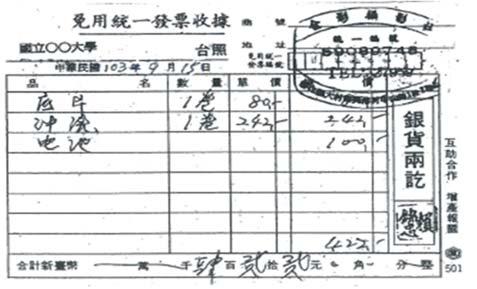 免用統一發票收據
國立〇〇大學 台照
商 號
地 址
免用統一發票編號
統一編號
TEL:
中華民國103年9月15日
品 名 數量 單價 價
底片 1卷 80.-
沖洗 1卷 242.- 242.-
电池 100.-
銀貨兩訖
422.-
合計新臺幣 萬 千肆百貳拾貳元 角 分整
互助合作 增產報國
501